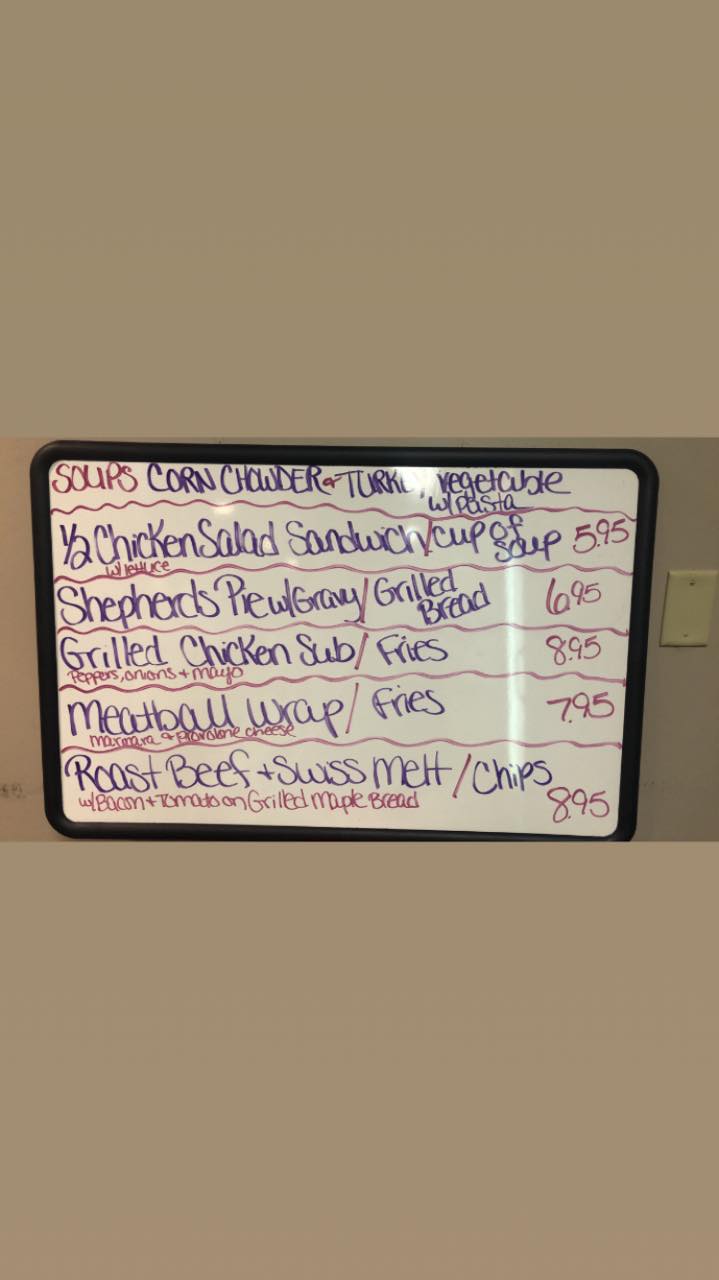 SOUPS CORN CHOWDER + TURKEY vegetable
w/pasta
1/2 Chicken Salad Sandwich/cup of soup 5.95
w/lettuce
Shepherds Pie w/Gravy/Grilled Bread 6.95
Grilled Chicken Sub/Fries 8.95
Peppers, onions + mayo
Meatball Wrap/Fries 7.95
& Provolone cheese
Roast Beef + Swiss Melt/Chips
w/Bacon + Tomato on Grilled Maple Bread 8.95